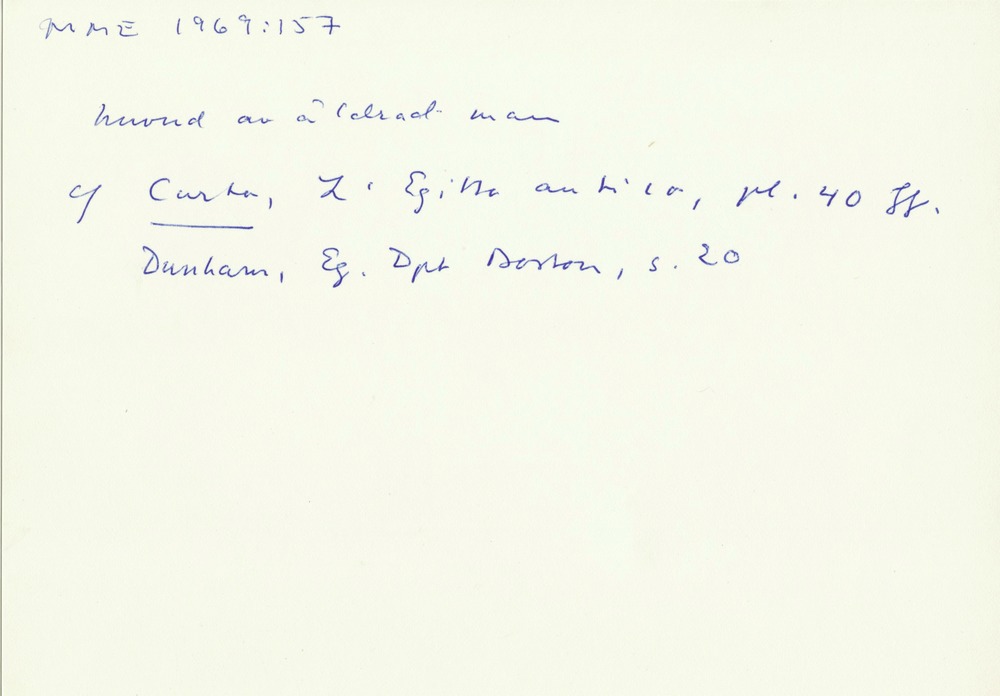 MME 1969:157
huvud av åldrad man
cf Curto, L'Egitto antico, pl. 40 ff.
Dunham, Eg. Dpt Boston, s. 20